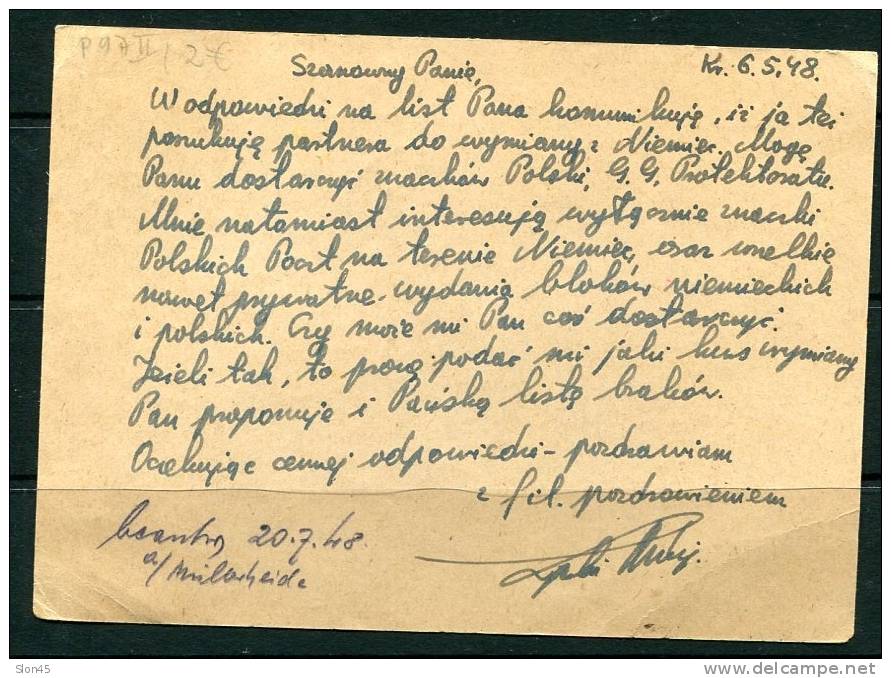 P 97 II / 2€
Szanowny Panie,
Kr. 6.5.48.
W odpowiedzi na list Pana komunikuję, iż ja też
poszukuję partnera do wymiany z Niemiec. Mogę
Panu dostarczyć znaczków Polski, G.G, Protektoratu.
Mnie natomiast interesują wyłącznie znaczki
Polskich Poczt na terenie Niemiec, oraz wszelkie
nawet prywatne wydania bloków niemieckich
i polskich. Czy może mi Pan coś dostarczyć.
Jeżeli tak, to proszę podać mi jaki kurs wymiany
Pan proponuje i Pańską listę braków.
Oczekując cennej odpowiedzi - pozdrawiam
z fil. pozdrowieniem
20.7.48.
a/
Slon45
delcampe.net